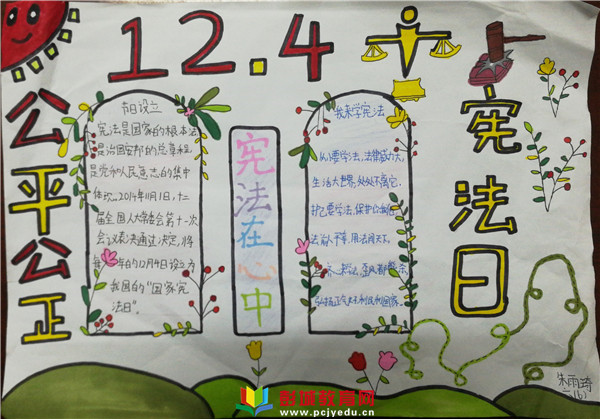 12.4
公平公正
节日设立
宪法是国家的根本法
是治国安邦的总章程
是党和人民意志的集中
体现。2014年11月1日,十二
届全国人大常委会第十一次
会议表决通过决定,将
每年的12月4日设立为
我国的"国家宪
法日"。
宪法在心中
我来学宪法
从小要学法,法律威力大,
生活大世界,处处不离它,
护己要学法,保护你我他
宪法日
朱雨琦
二(6)
彭城教育网
www.pcjyedu.cn